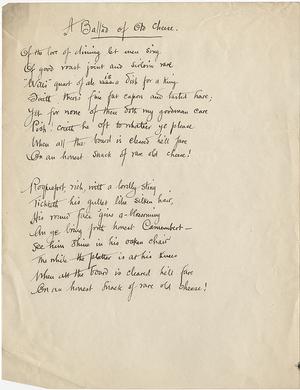 A Ballad of Old Cheese.
Of the love of dining let men sing,
Of good roast joint and sirloin rare,
With quart of ale is a dish for a king
there's fine fat capon and tasted hare;
Yet for none of them doth my goodman care
Pish! Quoth he oft to whatever ye please
When all the board is cleared he'll fare
On an honest snack of rare old cheese!
Roquefort rich, with a lordly sting
Tickleth his gullet like silken hair,
His round face 'gins a-blossoming
An ye bring forth honest Camembert—
See him shine in his oaken chair
The while the platter is at his knees
When all the board is cleared he'll fare
On an honest snack of rare old cheese!